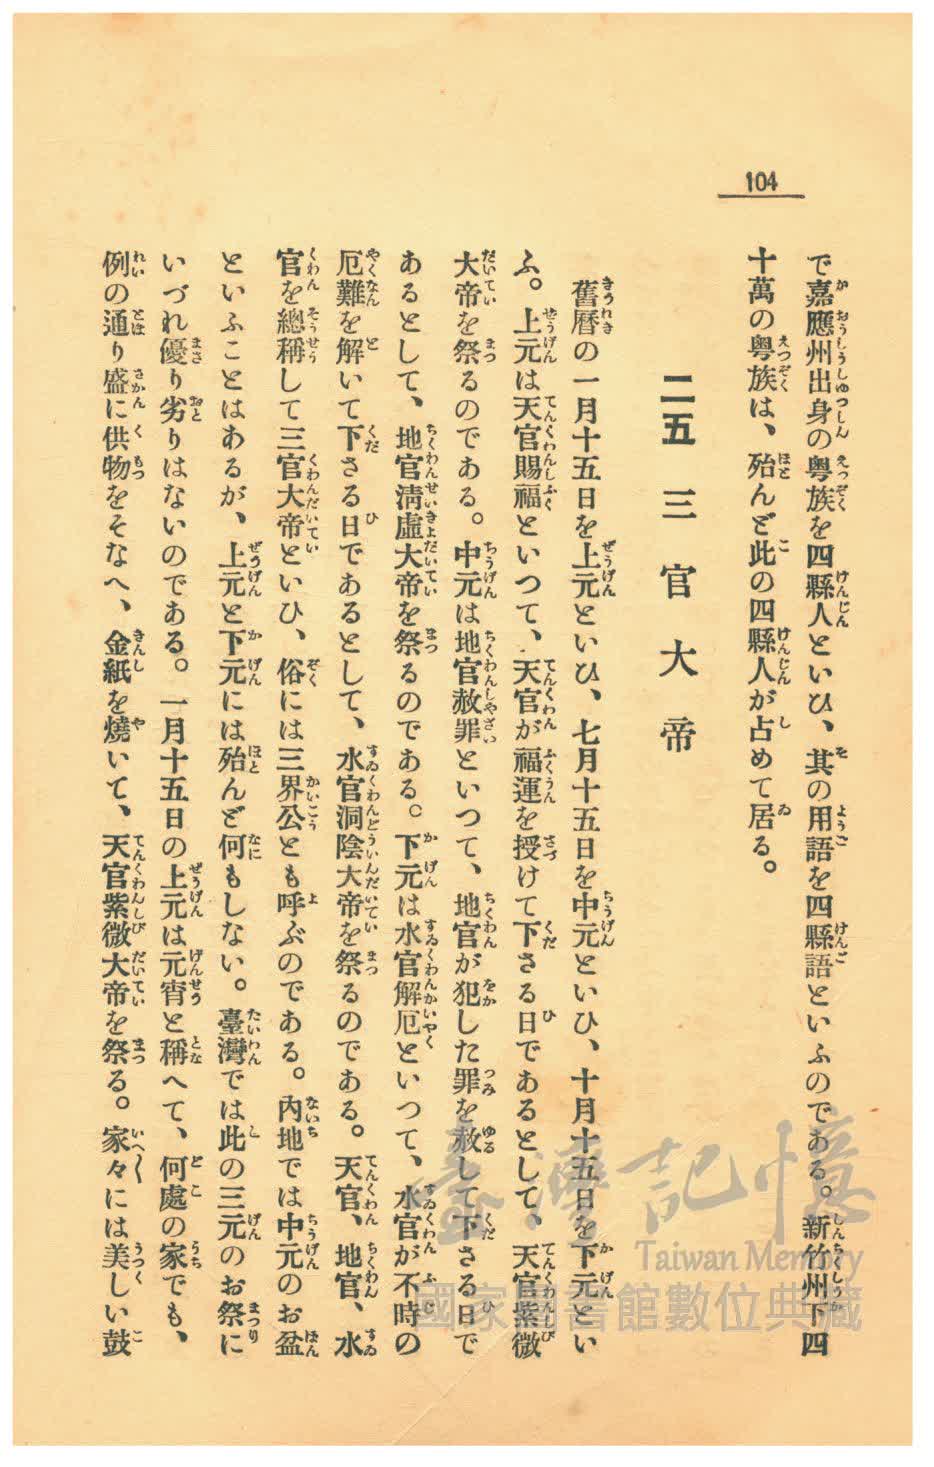 104
で嘉應州出身の粤族を四縣人といひ、其の用語を四縣語といふのである。新竹州下四
十萬の粤族は、殆んど此の四縣人が占めて居る。
二五 三官大帝
舊曆の一月十五日を上元といひ、七月十五日を中元といひ、十月十五日を下元とい
ふ。上元は天官賜福といつて、天官が福運を授けて下さる日であるとして、天官紫微
大帝を祭るのである。中元は地官赦罪といつて、地官が犯した罪を赦して下さる日で
あるとして、地官淸虛大帝を祭るのである。下元は水官解厄といつて、水官が不時の
厄難を解いて下さる日であるとして、水官洞陰大帝を祭るのである。天官、地官、水
官を總稱して三官大帝といひ、俗には三界公とも呼ぶのである。內地では中元のお盆
といふことはあるが、上元と下元には殆んど何もしない。臺灣では此の三元のお祭に
いづれ優り劣りはないのである。一月十五日の上元は元宵と稱へて、何處の家でも、
例の通り盛に供物をそなへ、金紙を燒いて、天官紫微大帝を祭る。家々には美しい鼓
臺灣記憶
Taiwan Memory
國家圖書館數位典藏